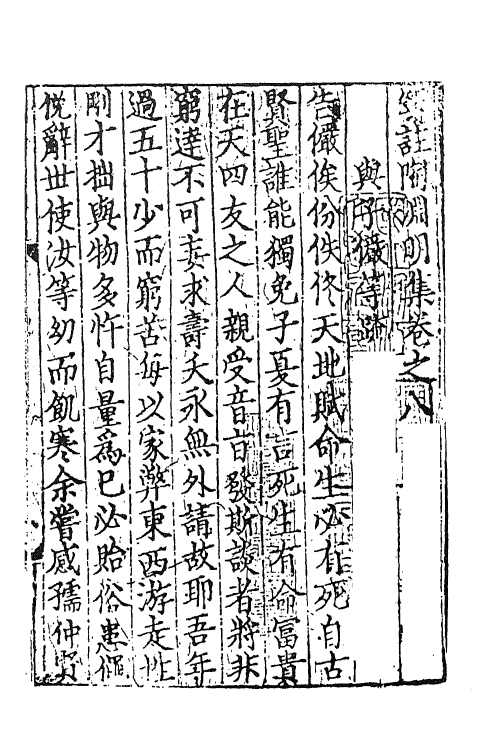 箋註陶淵明集卷之八
與子儼等疏
告儼俟份佚佟天地賦命生必有死自古
賢聖誰能獨免子夏有言死生有命富貴
在天四友之人親受音旨發斯談者將非
窮達不可妄求壽夭永無外請故耶吾年
過五十少而窮苦每以家弊東西游走性
剛才拙與物多忤自量爲己必貽俗患僶
俛辭世使汝等幼而飢寒余嘗感孺仲賢